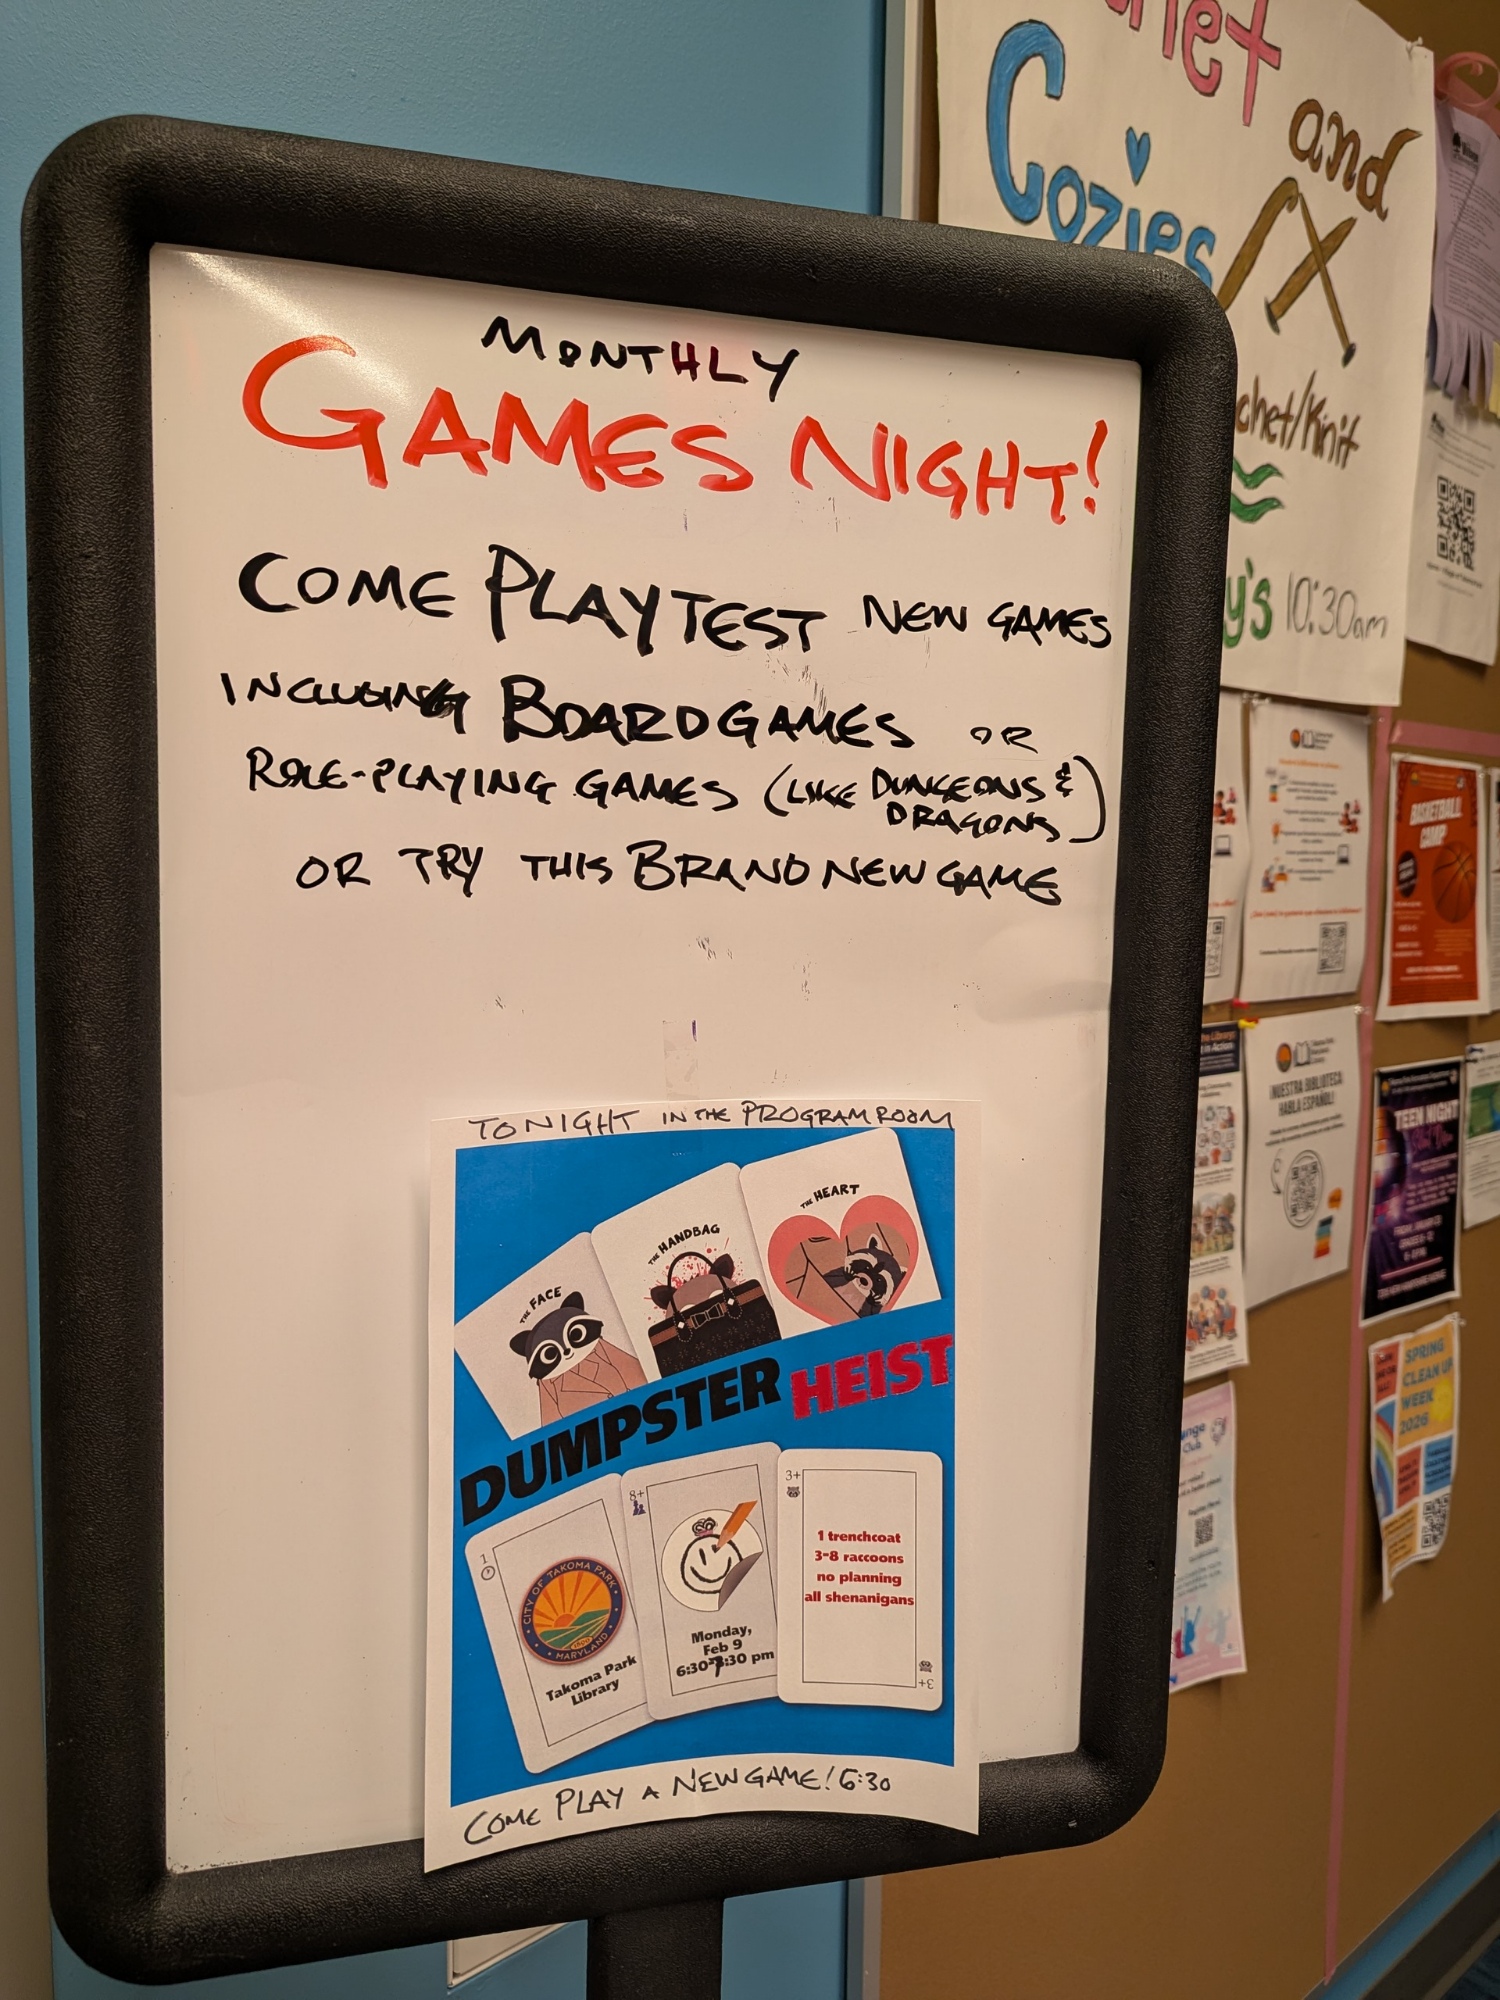 MONTHLY
GAMES NIGHT!
COME PLAYTEST NEW GAMES
INCLUDING BOARDGAMES OR
ROLE-PLAYING GAMES (LIKE DUNGEONS &
DRAGONS)
OR TRY THIS BRAND NEW GAME
TONIGHT IN THE PROGRAM ROOM
THE FACE
THE HANDBAG
THE HEART
DUMPSTER HEIST
1
CITY OF TAKOMA PARK
MARYLAND
Takoma Park
Library
8+
Monday,
Feb 9
6:30-7:30 pm
3+
1 trenchcoat
3-8 raccoons
no planning
all shenanigans
3+
COME PLAY A NEW GAME! 6:30
and
Cozies
chet/Knit
y's 10:30am
BASKETBALL
CAMP
NUESTRA BIBLIOTECA
HABLA ESPAÑOL!
TEEN NIGHT
SPRING
CLEAN UP
WEEK
2026
Club